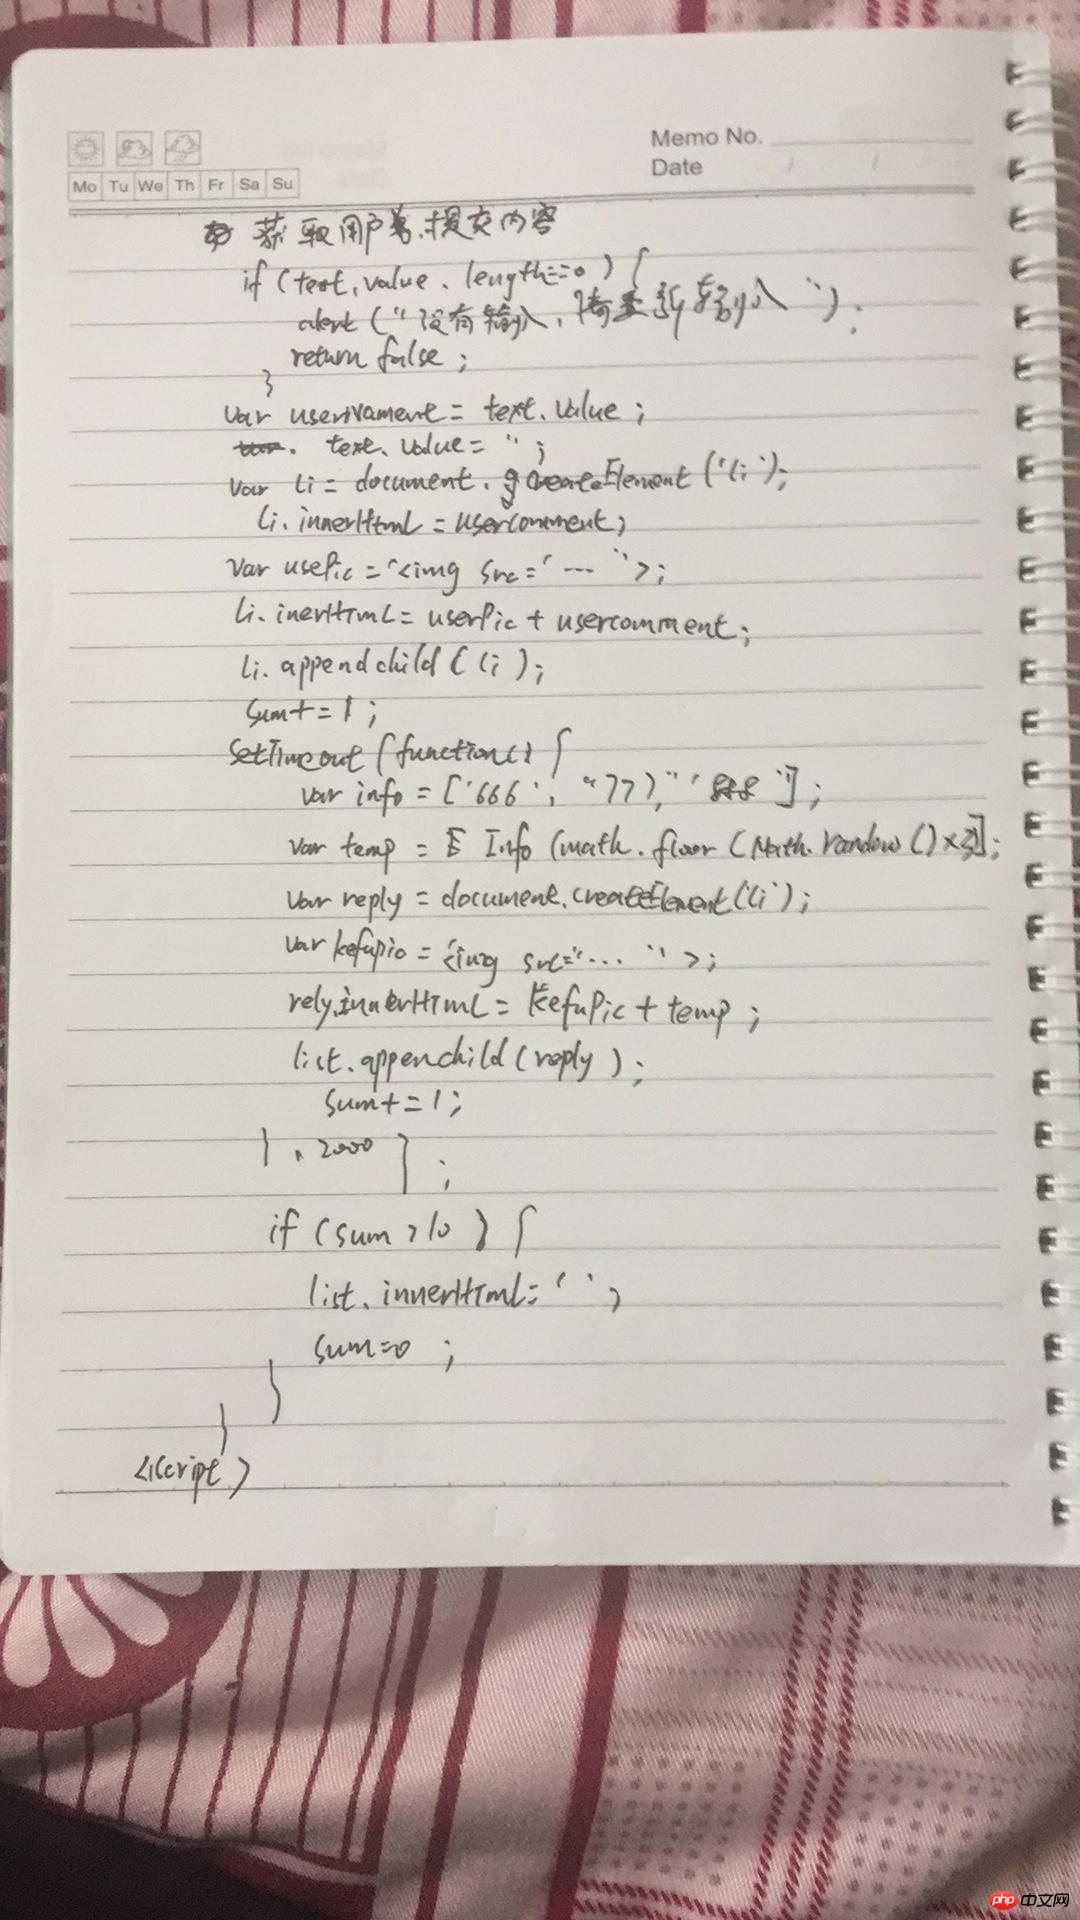 Memo No.
Date
Mo Tu We Th Fr Sa Su
获取用户 提交内容
if (text.value.length==0) {
alert ("没有输入,请重新输入");
return false;
}
var = text.value;
text.value = '';
var li = document.createElement('li');
li.innerHtml = usercomment;
var usePic = '<img src='... '>;
li.inerHTmL = userPic + usercomment;
li.appendchild(li);
sum+=1;
SetTimeout (function() {
var info = ['666', "77), " '888 '];
var temp = Info (math.floor (Math.randow()×3)];
var reply = document.createElement(li');
var kefupic = '<img src="... '>;
rely.innerHTmL = kefuPic + temp;
list.appenchild(reply);
sum+=1;
}, 2000 };
if (sum>10) {
list.innerHTmL='';
sum=0;
}
}
</script>
php 中文网